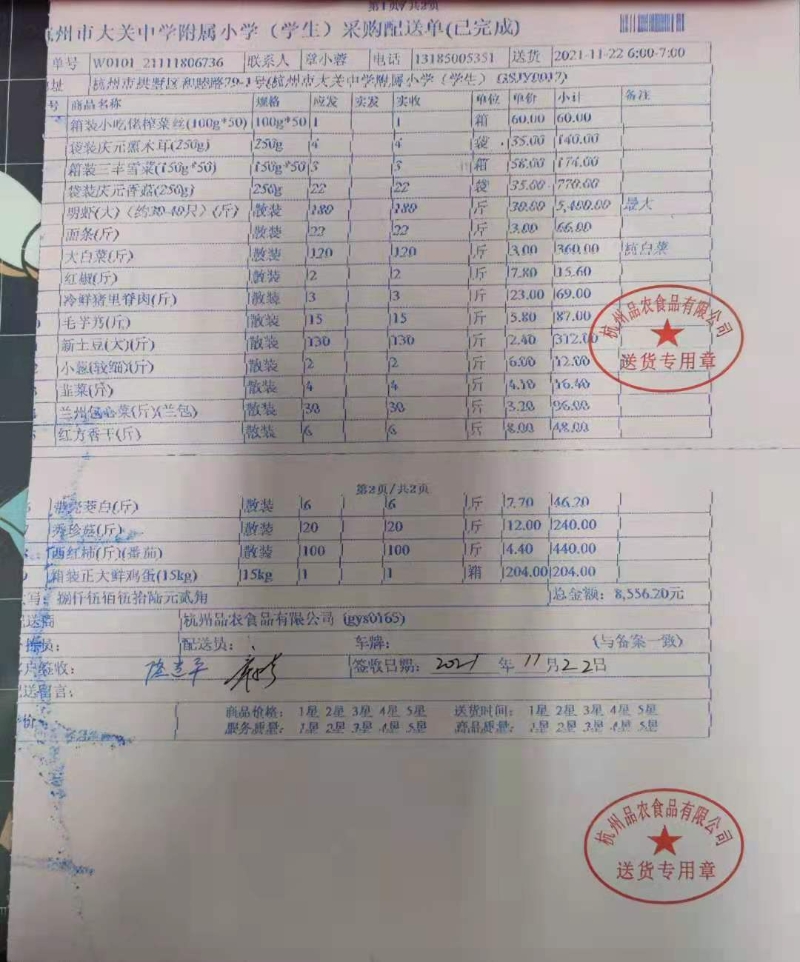 第1页/共2页
州市大关中学附属小学（学生）采购配送单(已完成)
单号 W0101 21111806736 联系人 章小蓉 电话 13185005351 送货 2021-11-22 6:00-7:00
址 杭州市拱墅区和睦路79-1号(杭州市大关中学附属小学（学生）GSJY0017)
号 商品名称 规格 应发 实发 实收 单位 单价 小计 备注
箱装小吃佬榨菜丝(100g*50) 100g*50 1 1 箱 60.00 60.00
袋装庆元黑木耳(250g) 250g 4 4 袋 35.00 140.00
箱装三丰雪菜(150g*50) 150g*50 3 3 箱 58.00 174.00
袋装庆元香菇(250g) 250g 22 22 袋 35.00 770.00
明虾(大)（约30-40只）(斤) 散装 180 180 斤 30.00 5,400.00 最大
面条(斤) 散装 22 22 斤 3.00 66.00
大白菜(斤) 散装 120 120 斤 3.00 360.00 白菜
红椒(斤) 散装 2 2 斤 7.80 15.60
冷鲜猪里脊肉(斤) 散装 3 3 斤 23.00 69.00
毛芋艿(斤) 散装 15 15 斤 5.80 87.00
新土豆(大)(斤) 散装 130 130 斤 2.40 312.00
小葱(较细)(斤) 散装 2 2 斤 6.00 12.00
韭菜(斤) 散装 4 4 斤 4.10 16.40
兰州包心菜(斤)(兰包) 散装 30 30 斤 3.20 96.00
红方香干(斤) 散装 6 6 斤 8.00 48.00
杭州品农食品有限公司
送货专用章
第2页/共2页
茭白(斤) 散装 6 6 斤 7.70 46.20
秀珍菇(斤) 散装 20 20 斤 12.00 240.00
西红柿(斤)(番茄) 散装 100 100 斤 4.40 440.00
箱装正大鲜鸡蛋(15kg) 15kg 1 1 箱 204.00 204.00
写: 捌仟伍佰伍拾陆元贰角 总金额: 8,556.20元
送商 杭州品农食品有限公司 (gys0165)
员: 配送员: 车牌: (与备案一致)
户签收: 签收日期: 2021 年 11 月 22 日
送留言:
价 商品价格: 1星 2星 3星 4星 5星 送货时间: 1星 2星 3星 4星 5星
服务质量: 1星 2星 3星 4星 5星 商品质量: 1星 2星 3星 4星 5星
杭州品农食品有限公司
送货专用章